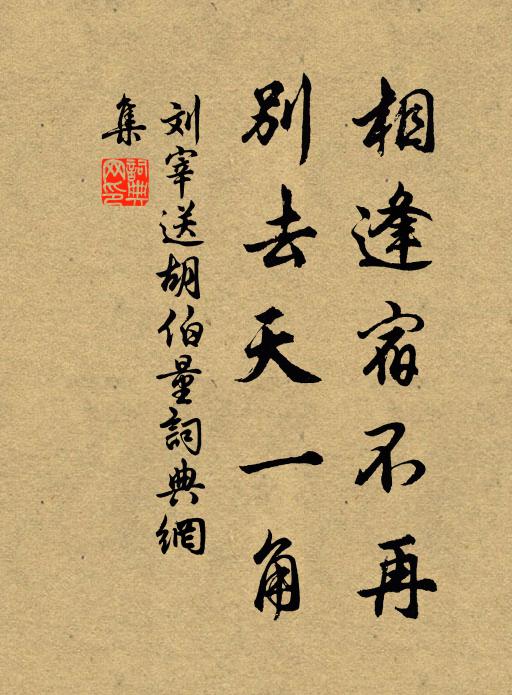 相逢宿不再
別去天一角
刘宰送胡伯量詞典網
集
詞典网印